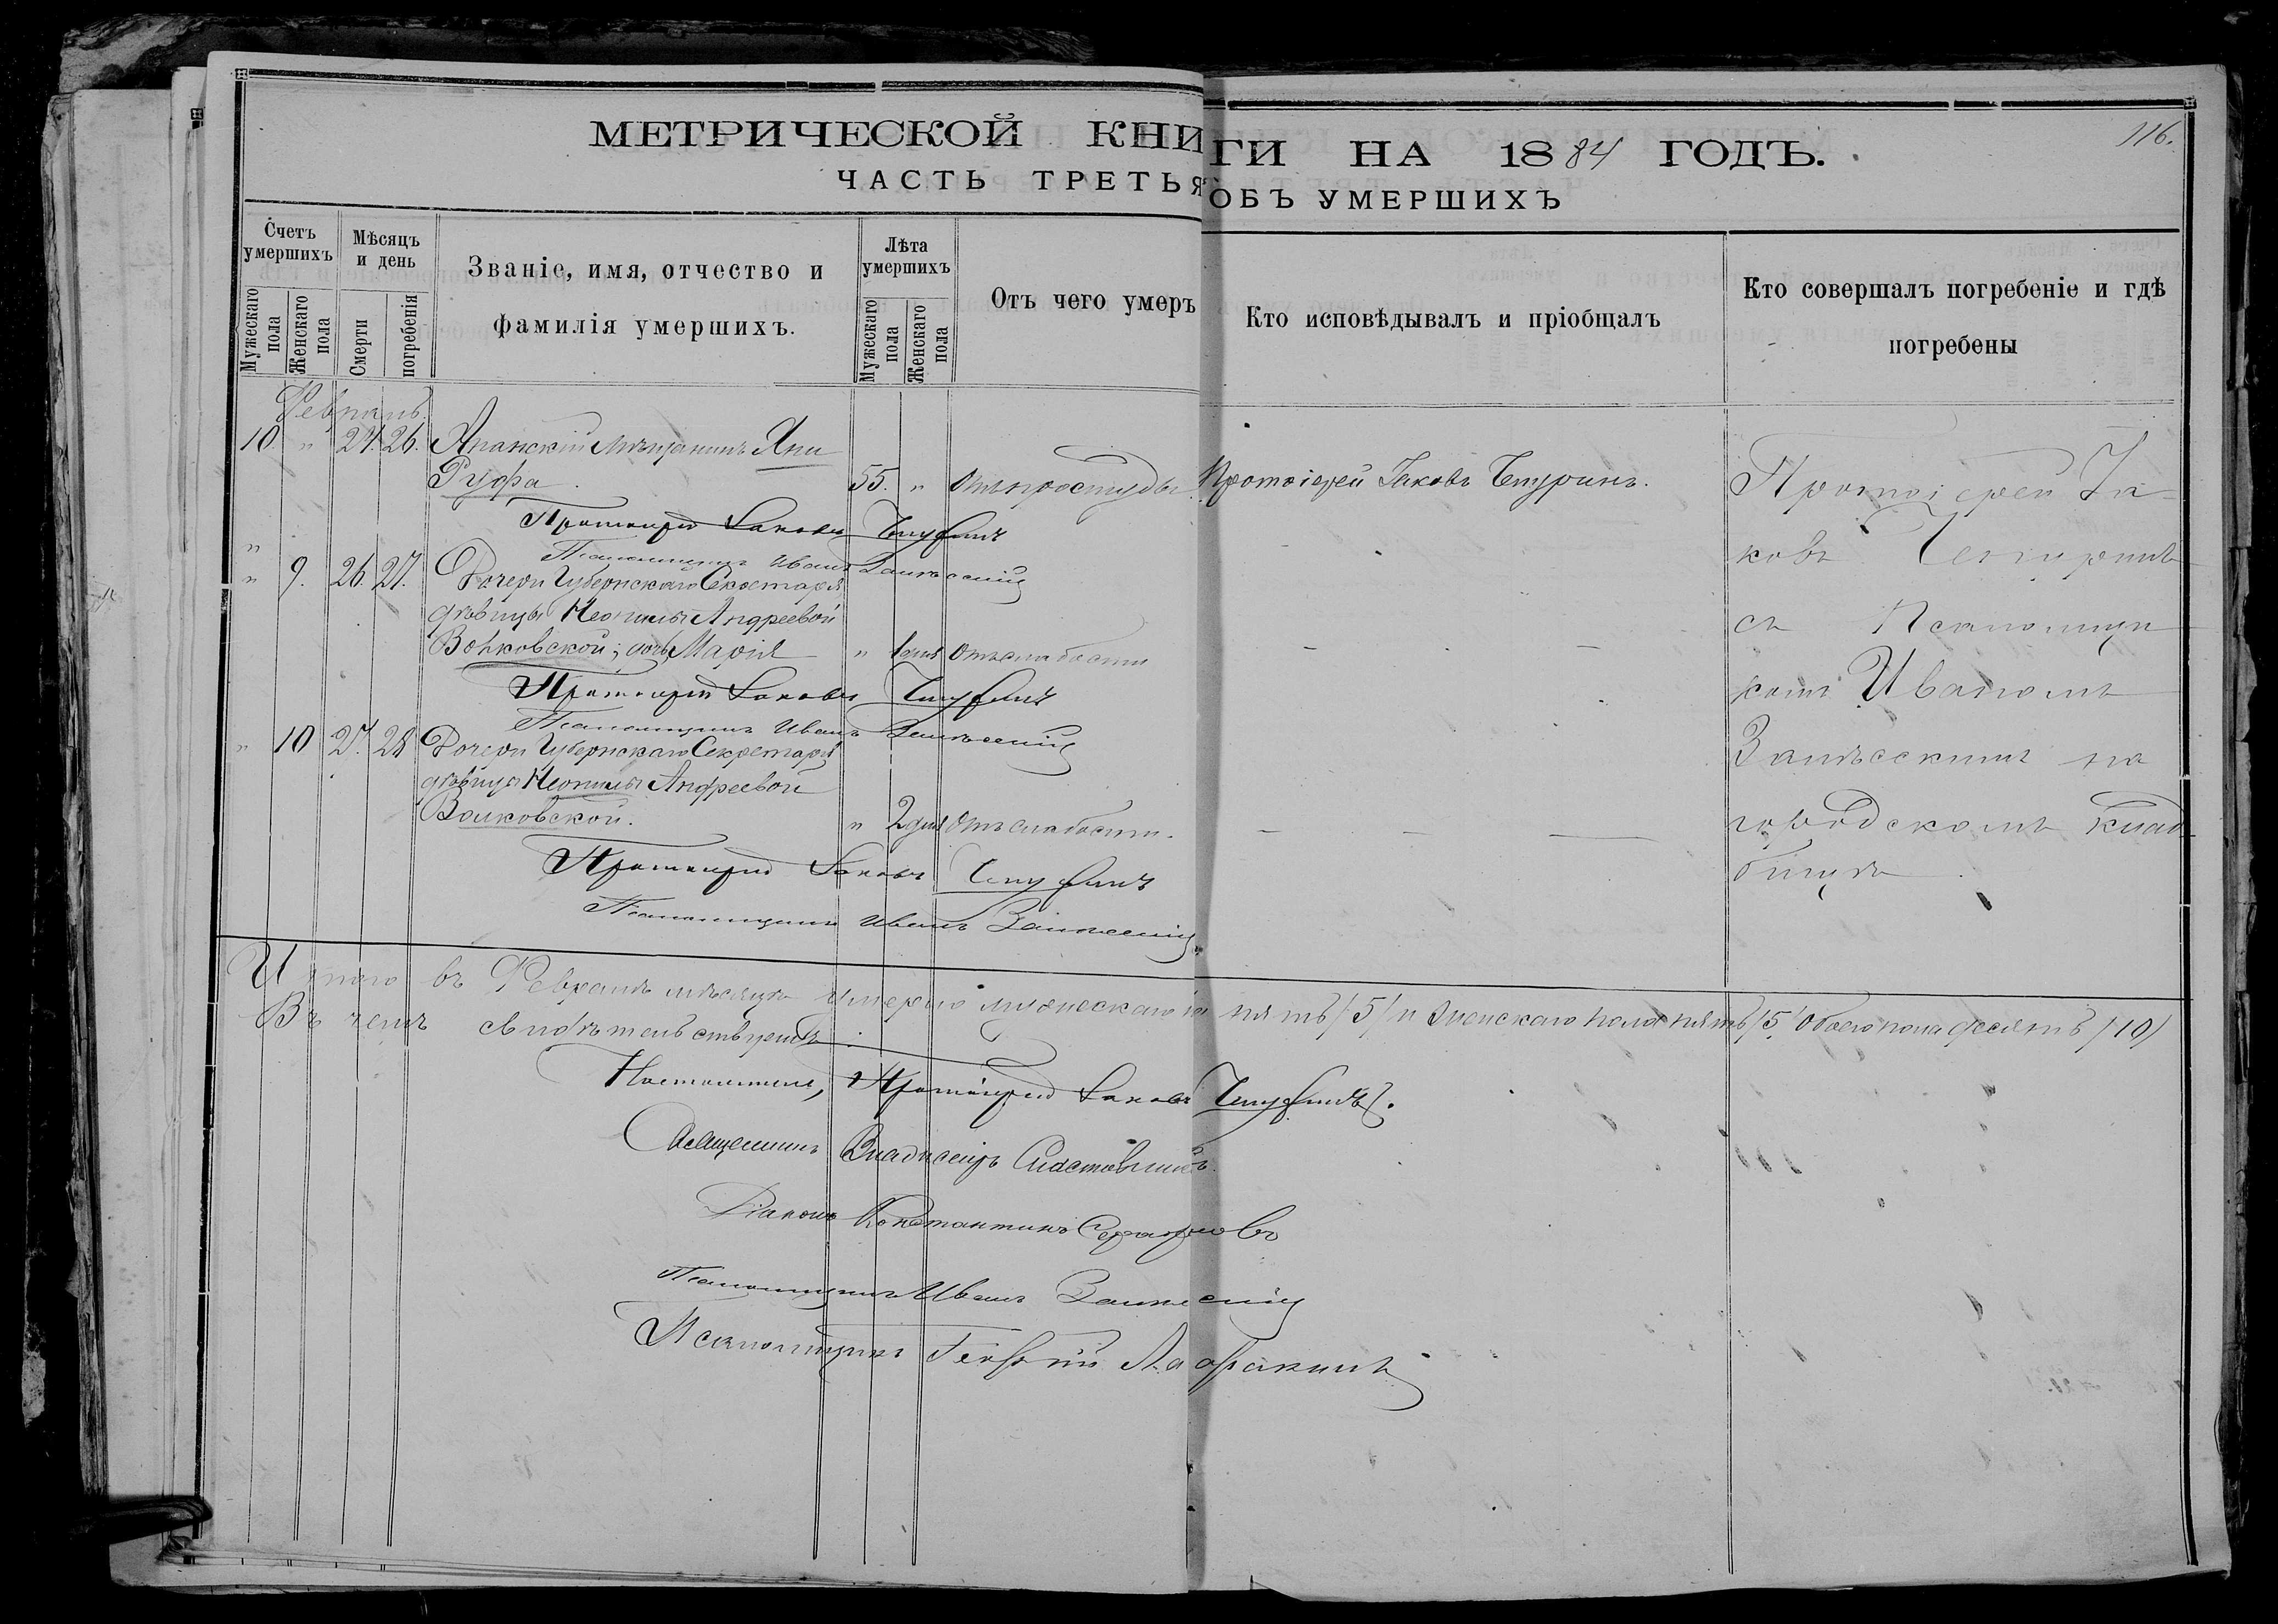 116.
МЕТРИЧЕСКОЙ КНИГИ НА 1884 ГОДЪ.
ЧАСТЬ ТРЕТЬЯ ОБЪ УМЕРШИХЪ
Счетъ умершихъ
Мужескаго пола
Женскаго пола
Мѣсяцъ и день
Смерти
погребенія
Званіе, имя, отчество и
фамилія умершихъ.
Лѣта умершихъ
Мужескаго пола
Женскаго пола
Отъ чего умеръ
Кто исповѣдывалъ и пріобщалъ
Кто совершалъ погребеніе и гдѣ
погребены
Февраль.
10. " 24. 26. Мѣщанинъ Яни
Руфа. 55. " Отъ простуды. Протоіерей Іаковъ Чепуринъ.
Протоіерей Іаковъ Чепуринъ
Псаломщикъ Иванъ
" 9. 26. 27. Дочери Губернскаго Секретаря
дѣвицы Неонилы Андреевой
Волковской, дочь Марія " 1 дня Отъ слабости
Протоіерей Іаковъ Чепуринъ
Псаломщикъ Иванъ
" 10 27. 28 Дочери Губернскаго Секретаря
дѣвица Неонила Андреевой
Волковской. " 2 дня Отъ слабости.
Протоіерей Іаковъ Чепуринъ
Псаломщикъ Иванъ
Протоіерей Іа-
ковъ Чепуринъ
съ Псаломщи
комъ Иваномъ
на
городскомъ клад
бищѣ
Итого въ Февралѣ мѣсяцѣ умерло мужескаго по пять /5/ и женскаго пола пять /5/ Обоего пола десять /10/
Въ чемъ свидѣтельствуемъ:
Настоятель, Протоіерей Іаковъ Чепуринъ.
Священникъ Владиміръ
Діаконъ Константинъ Серафимовъ
Псаломщикъ Иванъ
Псаломщикъ Георгій